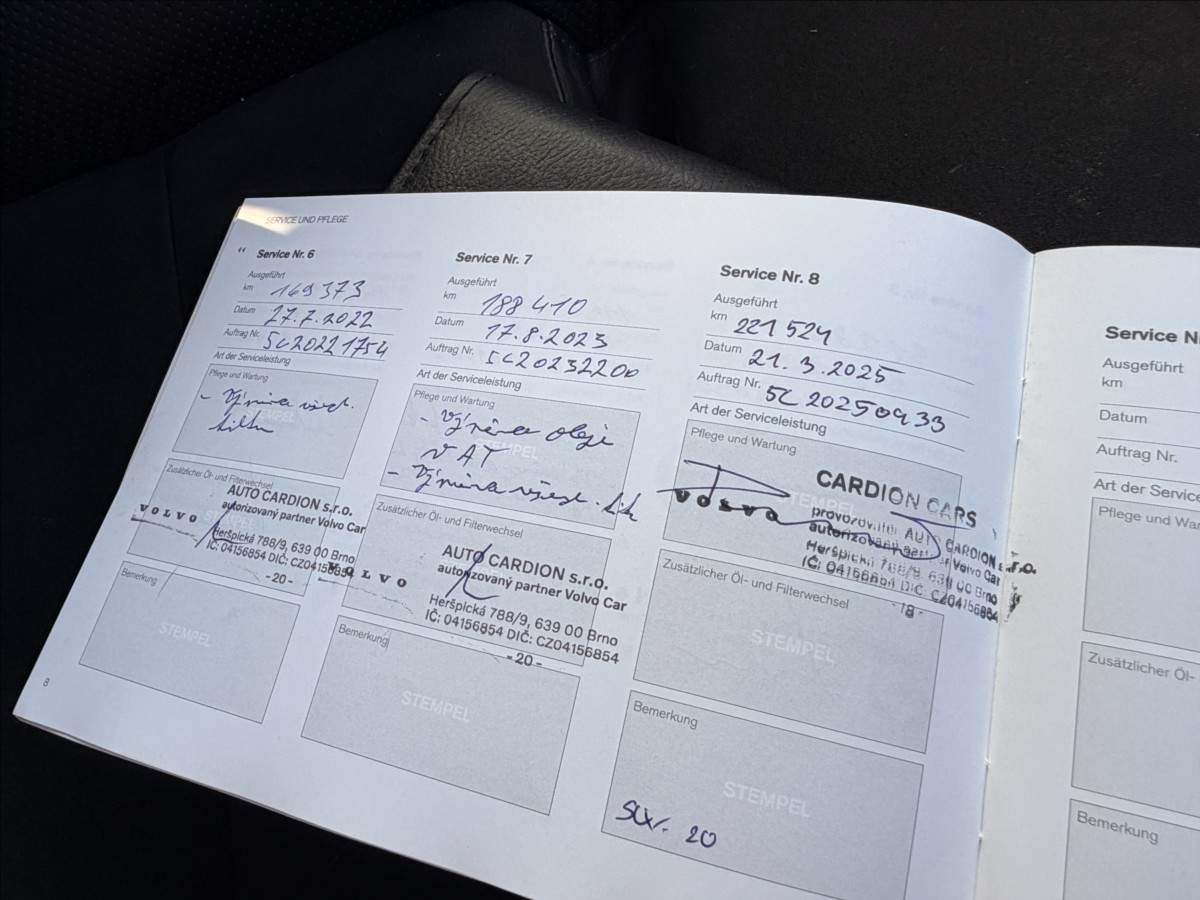 SERVICE UND PFLEGE
Service Nr. 6
Ausgeführt
km 169373
Datum 27.7.2022
Auftrag Nr. SC20221754
Art der Serviceleistung
Pflege und Wartung
- Výměna vzect.
filtru
STEMPEL
Zusätzlicher Öl- und Filterwechsel
VOLVO
AUTO CARDION s.r.o.
autorizovaný partner Volvo Car
Heršpická 788/9, 639 00 Brno
IČ: 04156854 DIČ: CZ04156854
- 20 -
Bemerkung
STEMPEL
8
Service Nr. 7
Ausgeführt
km 188410
Datum 17.8.2023
Auftrag Nr. SC20232200
Art der Serviceleistung
Pflege und Wartung
- Výměna oleje
v AT
- Výměna
STEMPEL
Zusätzlicher Öl- und Filterwechsel
VOLVO
AUTO CARDION s.r.o.
autorizovaný partner Volvo Car
Heršpická 788/9, 639 00 Brno
IČ: 04156854 DIČ: CZ04156854
- 20 -
Bemerkung
STEMPEL
Service Nr. 8
Ausgeführt
km 221 524
Datum 21. 3. 2025
Auftrag Nr. SC 20250933
Art der Serviceleistung
Pflege und Wartung
STEMPEL
CARDION CARS
VOLVO
AUTO CARDION s.r.o.
Volvo Car
Heršpická 788/9, 639 00 Brno
IČ: 04156854 DIČ: CZ04156854
- 18 -
Zusätzlicher Öl- und Filterwechsel
STEMPEL
Bemerkung
STEMPEL
20
Service N
Ausgeführt
km
Datum
Auftrag Nr.
Art der Service
Pflege und Wa
Zusätzlicher Öl-
Bemerkung